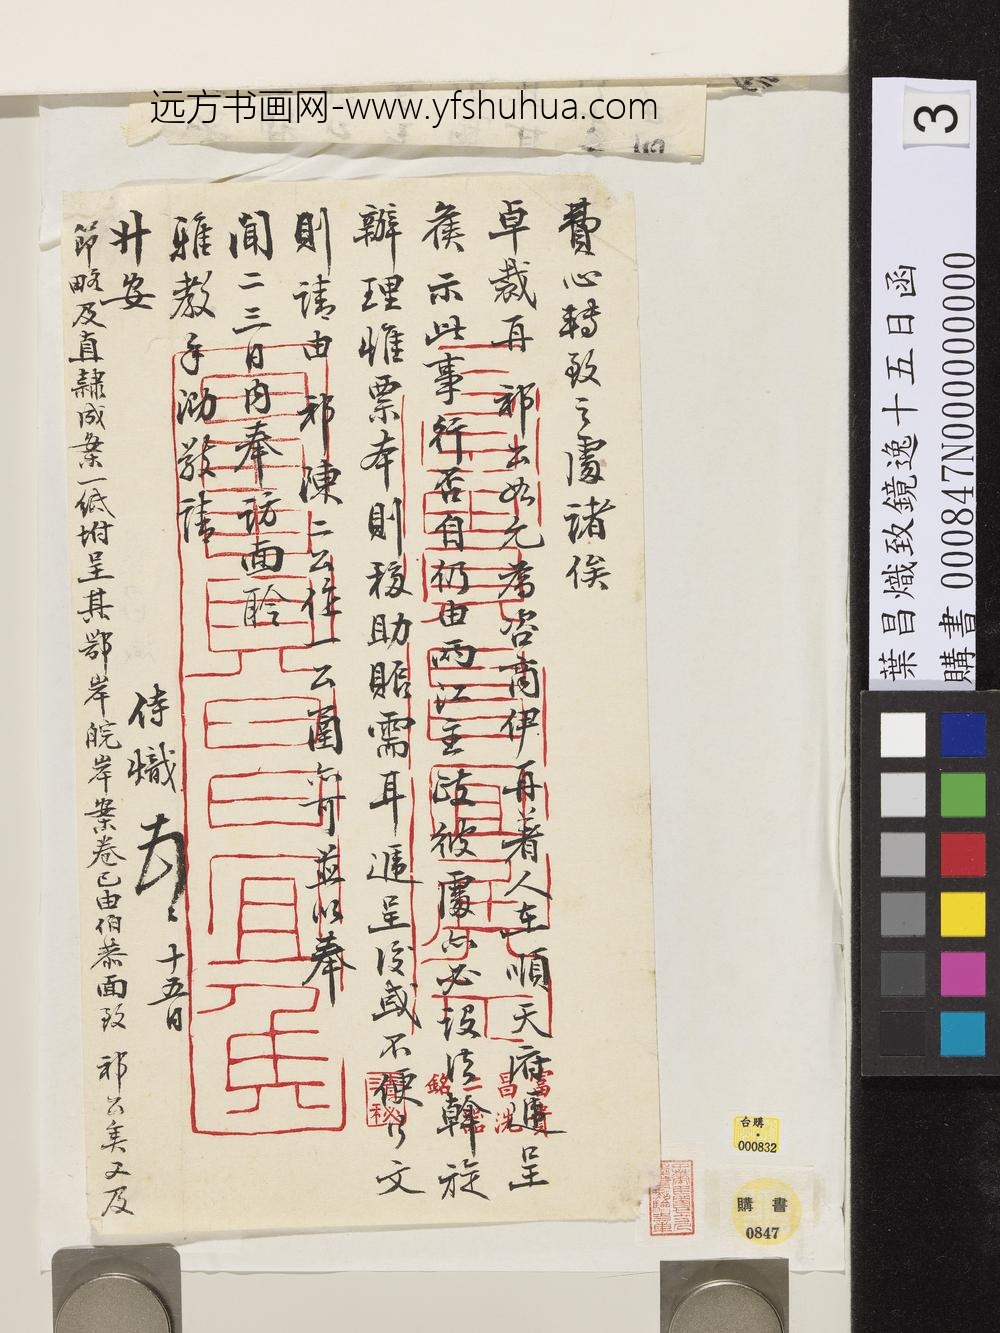 远方书画网-www.yfshuhua.com
費心轉致之處諸俟
卓裁再 祁公如允為咨商伊再著人在順天府遞呈
俟示此事行否自仍由兩江主政彼處必設法斡旋
辦理惟票本則移助賑需耳遞呈後或不便行文
則請由 祁陳二公任一公函亦可並以奉
聞二三日內奉訪面聆
雅教手泐敬請
升安
侍熾 十五日
節略及直隸成案一紙坿呈其鄂岸皖岸案卷已由伯恭面致 祁公矣又及
3
葉昌熾致鏡逸十五日函
購書 000847N000000000
富貴
昌
洗
銘
二
秘
台購
000832
購書
0847